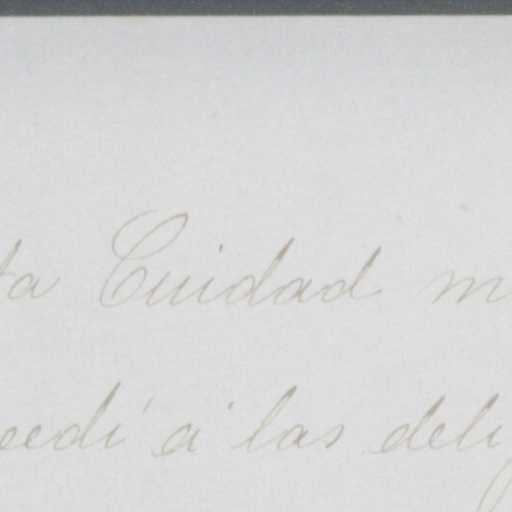 ta Cuidad m
cedí á las deli